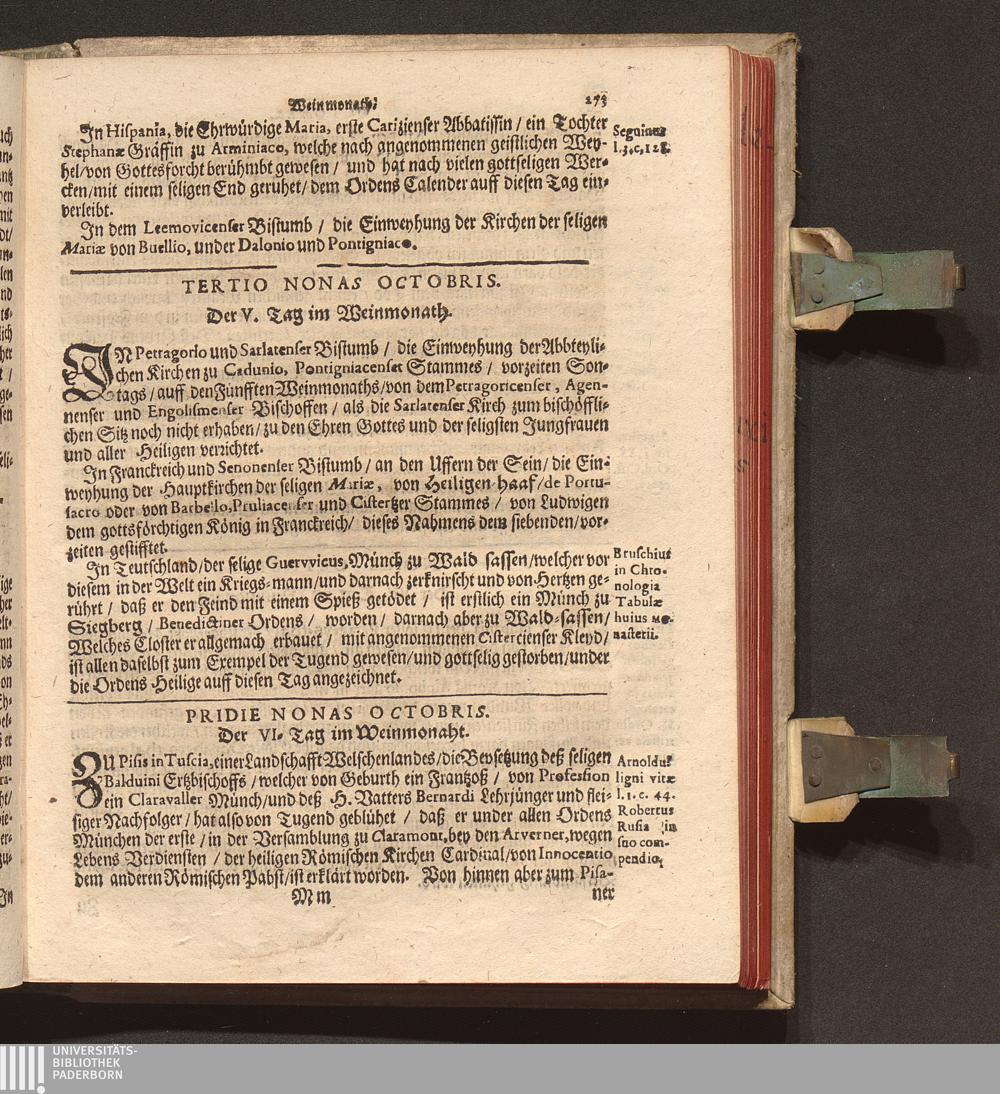 Weinmonath. 273
In Hispania, die Ehrwürdige Maria, erste Carizienser Abbatissin / ein Tochter
Stephanæ Gräffin zu Arminiaco, welche nach angenommenen geistlichen Wey-
hel/von Gottesforcht berühmbt gewesen / und hat nach vielen gottseligen Wer-
cken/mit einem seligen End geruhet/dem Ordens Calender auff diesen Tag ein-
verleibt.
Seguinus
l.3.c,128.
In dem Leemovicenser Bistumb / die Einweyhung der Kirchen der seligen
Mariæ von Buellio, under Dalonio und Pontigniaco.
TERTIO NONAS OCTOBRIS.
Der V. Tag im Weinmonath.
IN Petragorio und Sarlatenser Bistumb / die Einweyhung der Abbteyli-
chen Kirchen zu Cadunio, Pontigniacenser Stammes / vorzeiten Son-
tags / auff den Fünfften Weinmonaths/von dem Petragoricenser, Agen-
nenser und Engolismenser Bischoffen / als die Sarlatenser Kirch zum bischöffli-
chen Sitz noch nicht erhaben/zu den Ehren Gottes und der seligsten Jungfrauen
und aller Heiligen verrichtet.
In Franckreich und Senonenser Bistumb / an den Uffern der Sein/die Ein-
weyhung der Hauptkirchen der seligen Mariæ, von Heiligen-haaf/de Portu-
sacro oder von Barbello, Pruliacenser und Cistertzer Stammes / von Ludwigen
dem gottsförchtigen König in Franckreich/ dieses Nahmens dem siebenden/vor-
zeiten gestifftet.
In Teutschland/der selige Guervvicus, Münch zu Wald sassen/welcher vor
diesem in der Welt ein Kriegs-mann/und darnach zerknirscht und von Hertzen ge-
rührt / daß er den Feind mit einem Spieß getödet / ist erstlich ein Münch zu
Siegberg / Benedictiner Ordens / worden / darnach aber zu Wald-sassen/
Welches Closter er allgemach erbauet / mit angenommenen Cistercienser Kleyd/
ist allen daselbst zum Exempel der Tugend gewesen/und gottselig gestorben/under
die Ordens Heilige auff diesen Tag angezeichnet.
Bruschius
in Chro-
nologia
Tabulæ
huius mo-
nasterii.
PRIDIE NONAS OCTOBRIS.
Der VI. Tag im Weinmonaht.
ZU Pisis in Tuscia, einer Landschafft Welschenlandes/die Beysetzung deß seligen
Balduini Ertzbischoffs / welcher von Geburth ein Frantzoß / von Profession
ein Claravaller Münch/und deß H. Vatters Bernardi Lehrjünger und flei-
siger Nachfolger / hat also von Tugend geblühet / daß er under allen Ordens
München der erste / in der Versamblung zu Claramont, bey den Arverner, wegen
Lebens Verdiensten / der heiligen Römischen Kirchen Cardinal/von Innocentio
dem anderen Römischen Pabst/ist erklärt worden. Von hinnen aber zum Pisa-
Mm ner
Arnoldus
ligni vitæ
l.1.c. 44.
Robertus
Rusia in
suo com-
pendio,
UNIVERSITÄTS-
BIBLIOTHEK
PADERBORN